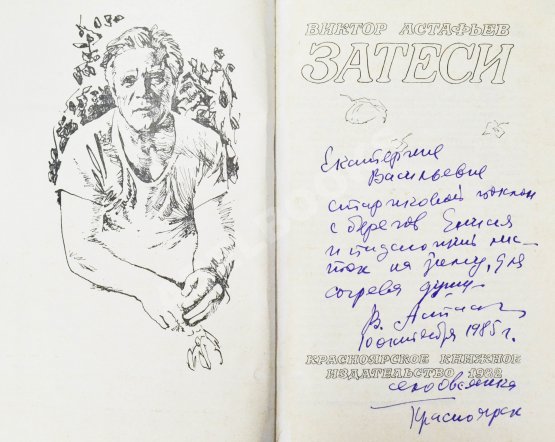 ВИКТОР АСТАФЬЕВ
ЗАТЕСИ
Екатерине
Васильевне
стариковский поклон
с берегов Енисея
и таёжный лис-
ток на зиму, для
согрева души
В. Астафьев
10 октября 1985 г.
КРАСНОЯРСКОЕ КНИЖНОЕ
ИЗДАТЕЛЬСТВО 1982
село Овсянка
Красноярск